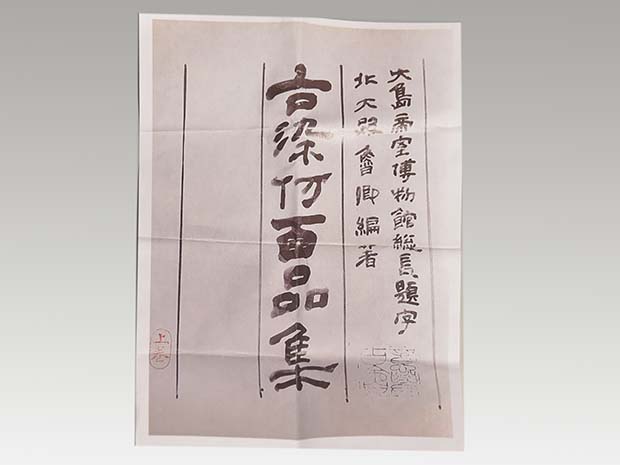 大島帝室博物館総長題字
北大路魯卿編著
古染付百品集
上巻